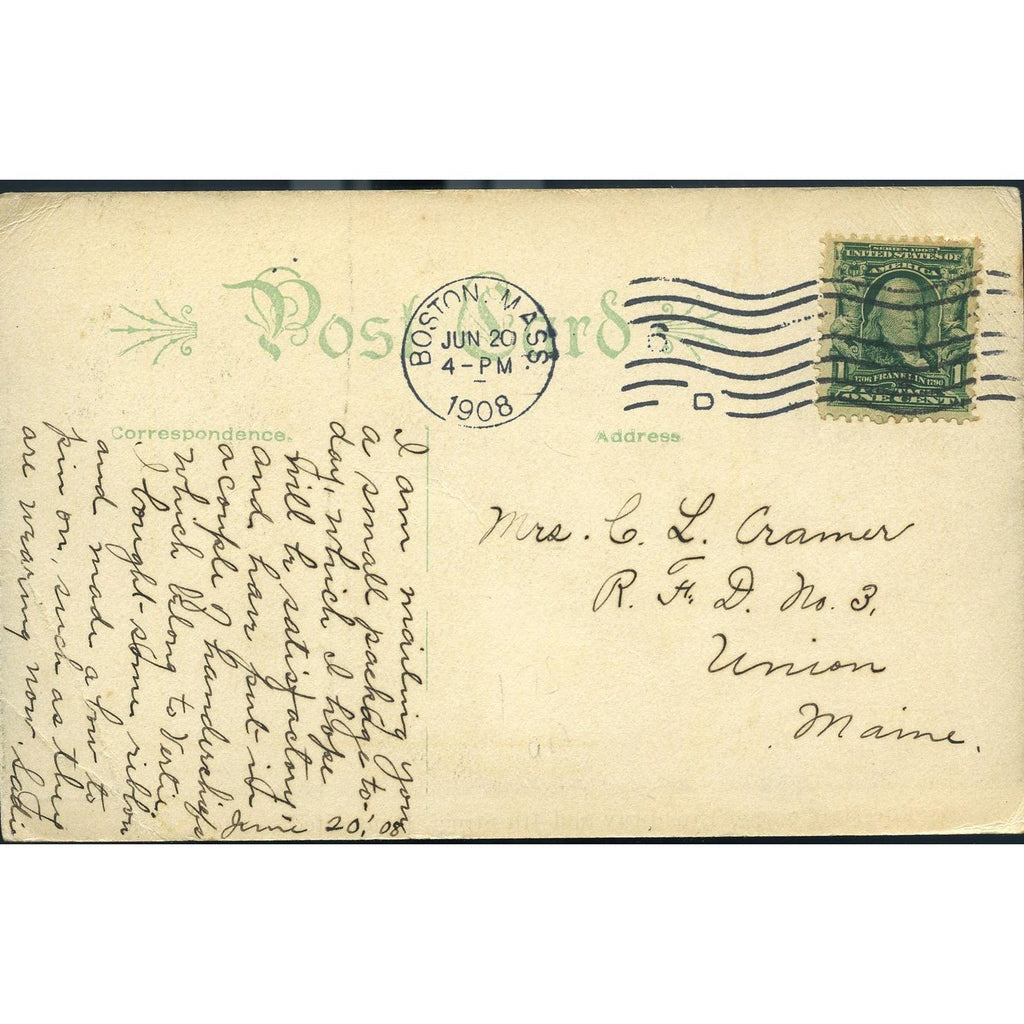 Post Card
BOSTON, MASS.
JUN 20
4-PM
1908
6
D
SERIES 1902
UNITED STATES OF
AMERICA
1706 FRANKLIN 1790
POSTAGE
1 ONE CENT 1
Correspondence.
Address
Mrs. C. L. Cramer
R. F. D. No. 3,
Union
Maine.
June 20, '08
I am mailing you
a small package to-
day, which I hope
will be satisfactory
and have put in
a couple of handerchifs
which belong to Vertie.
I bought some ribbon
and made a bow to
pin on, such as they
are wearing now. Sadi